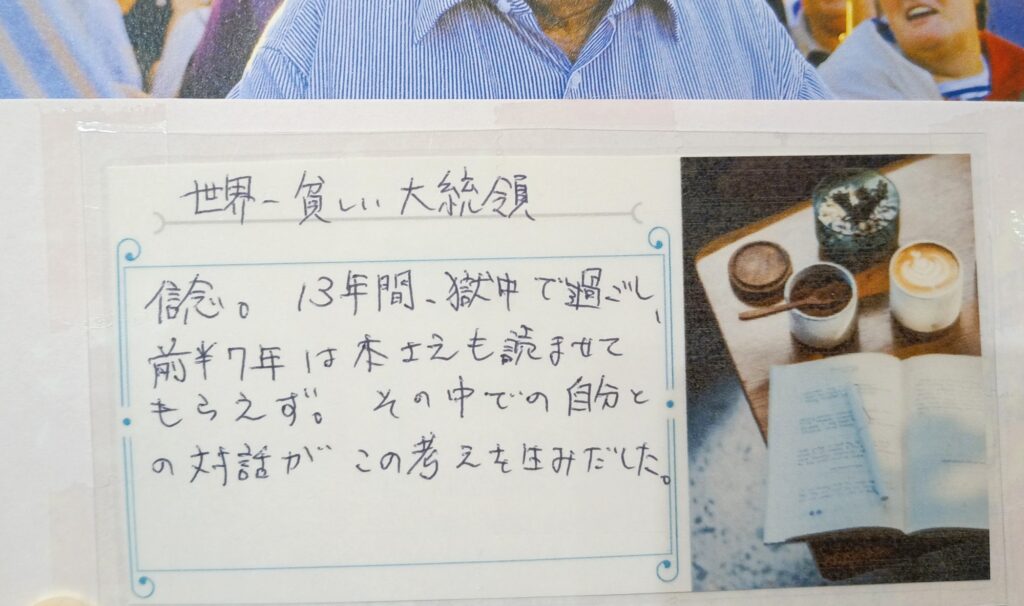 世界一貧しい大統領
信念。 13年間、獄中で過ごし、
前半7年は本さえも読ませて
もらえず。 その中での自分と
の対話が この考えを生みだした。